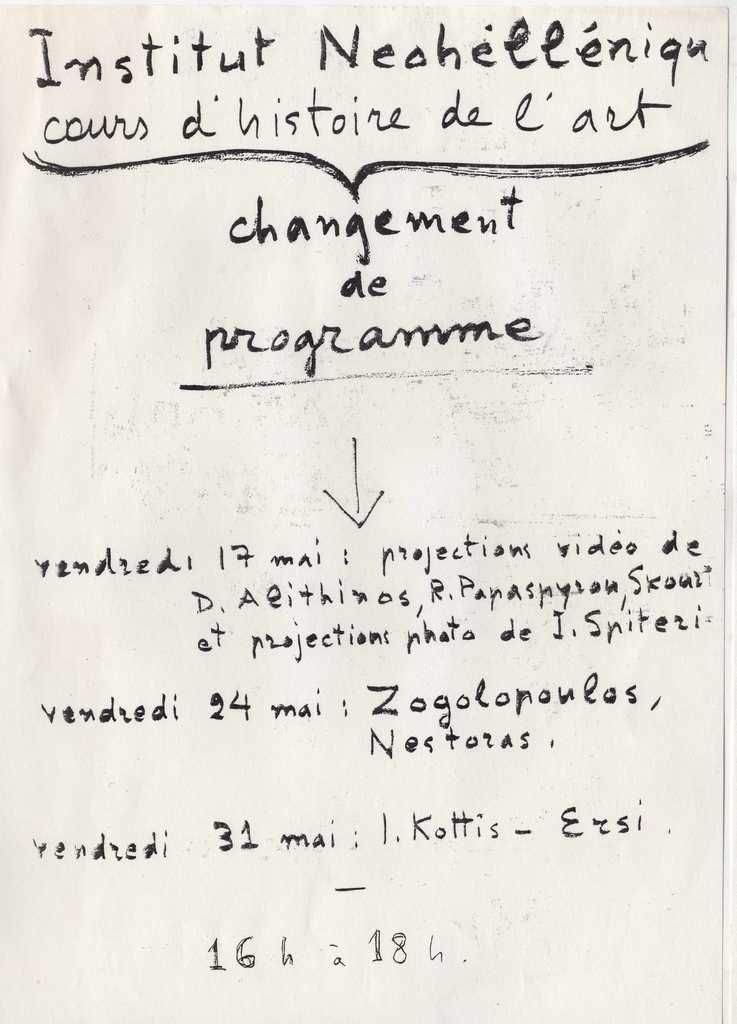 Institut Neohélléniqu
cours d'histoire de l'art
changement
de
programme
vendredi 17 mai : projections vidéo de
D. Alithinos, R. Papaspyrou, Skourt
et projections photo de I. Spiteri
vendredi 24 mai : Zogolopoulos,
Nestoras.
vendredi 31 mai : I. Kottis - Ersi.
16 h à 18 h.